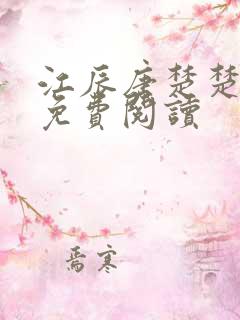 江辰唐楚楚
免費閱讀
焉寒